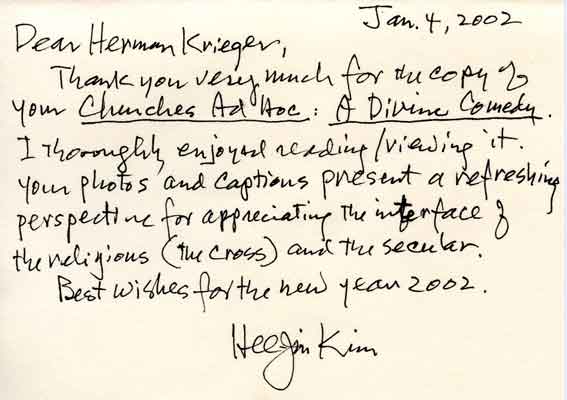 Jan. 4, 2002
Dear Herman Krieger,
Thank you very much for the copy of
your Churches Ad Hoc: A Divine Comedy.
I thoroughly enjoyed reading/viewing it.
Your photos and captions present a refreshing
perspective for appreciating the interface of
the religious (the cross) and the secular.
Best wishes for the new year 2002.
Hee-Jin Kim